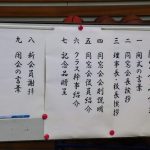 一 開式の言葉
二 同窓会長挨拶
三 理事長・校長挨拶
四 同窓会会則説明
五 同窓会役員紹介
六 クラス幹事紹介
七 記念品贈呈
八 新会員謝辞
九 閉会の言葉